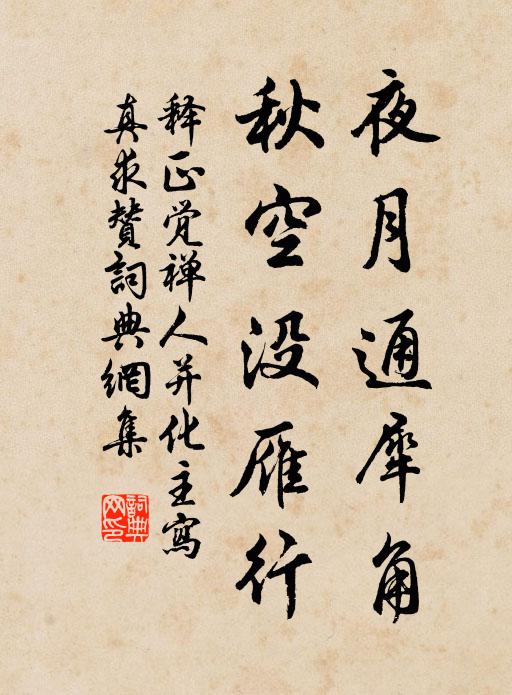 夜月通犀角
秋空没雁行
释正觉禅人并化主寫
真求贊詞典網集
詞典
网印